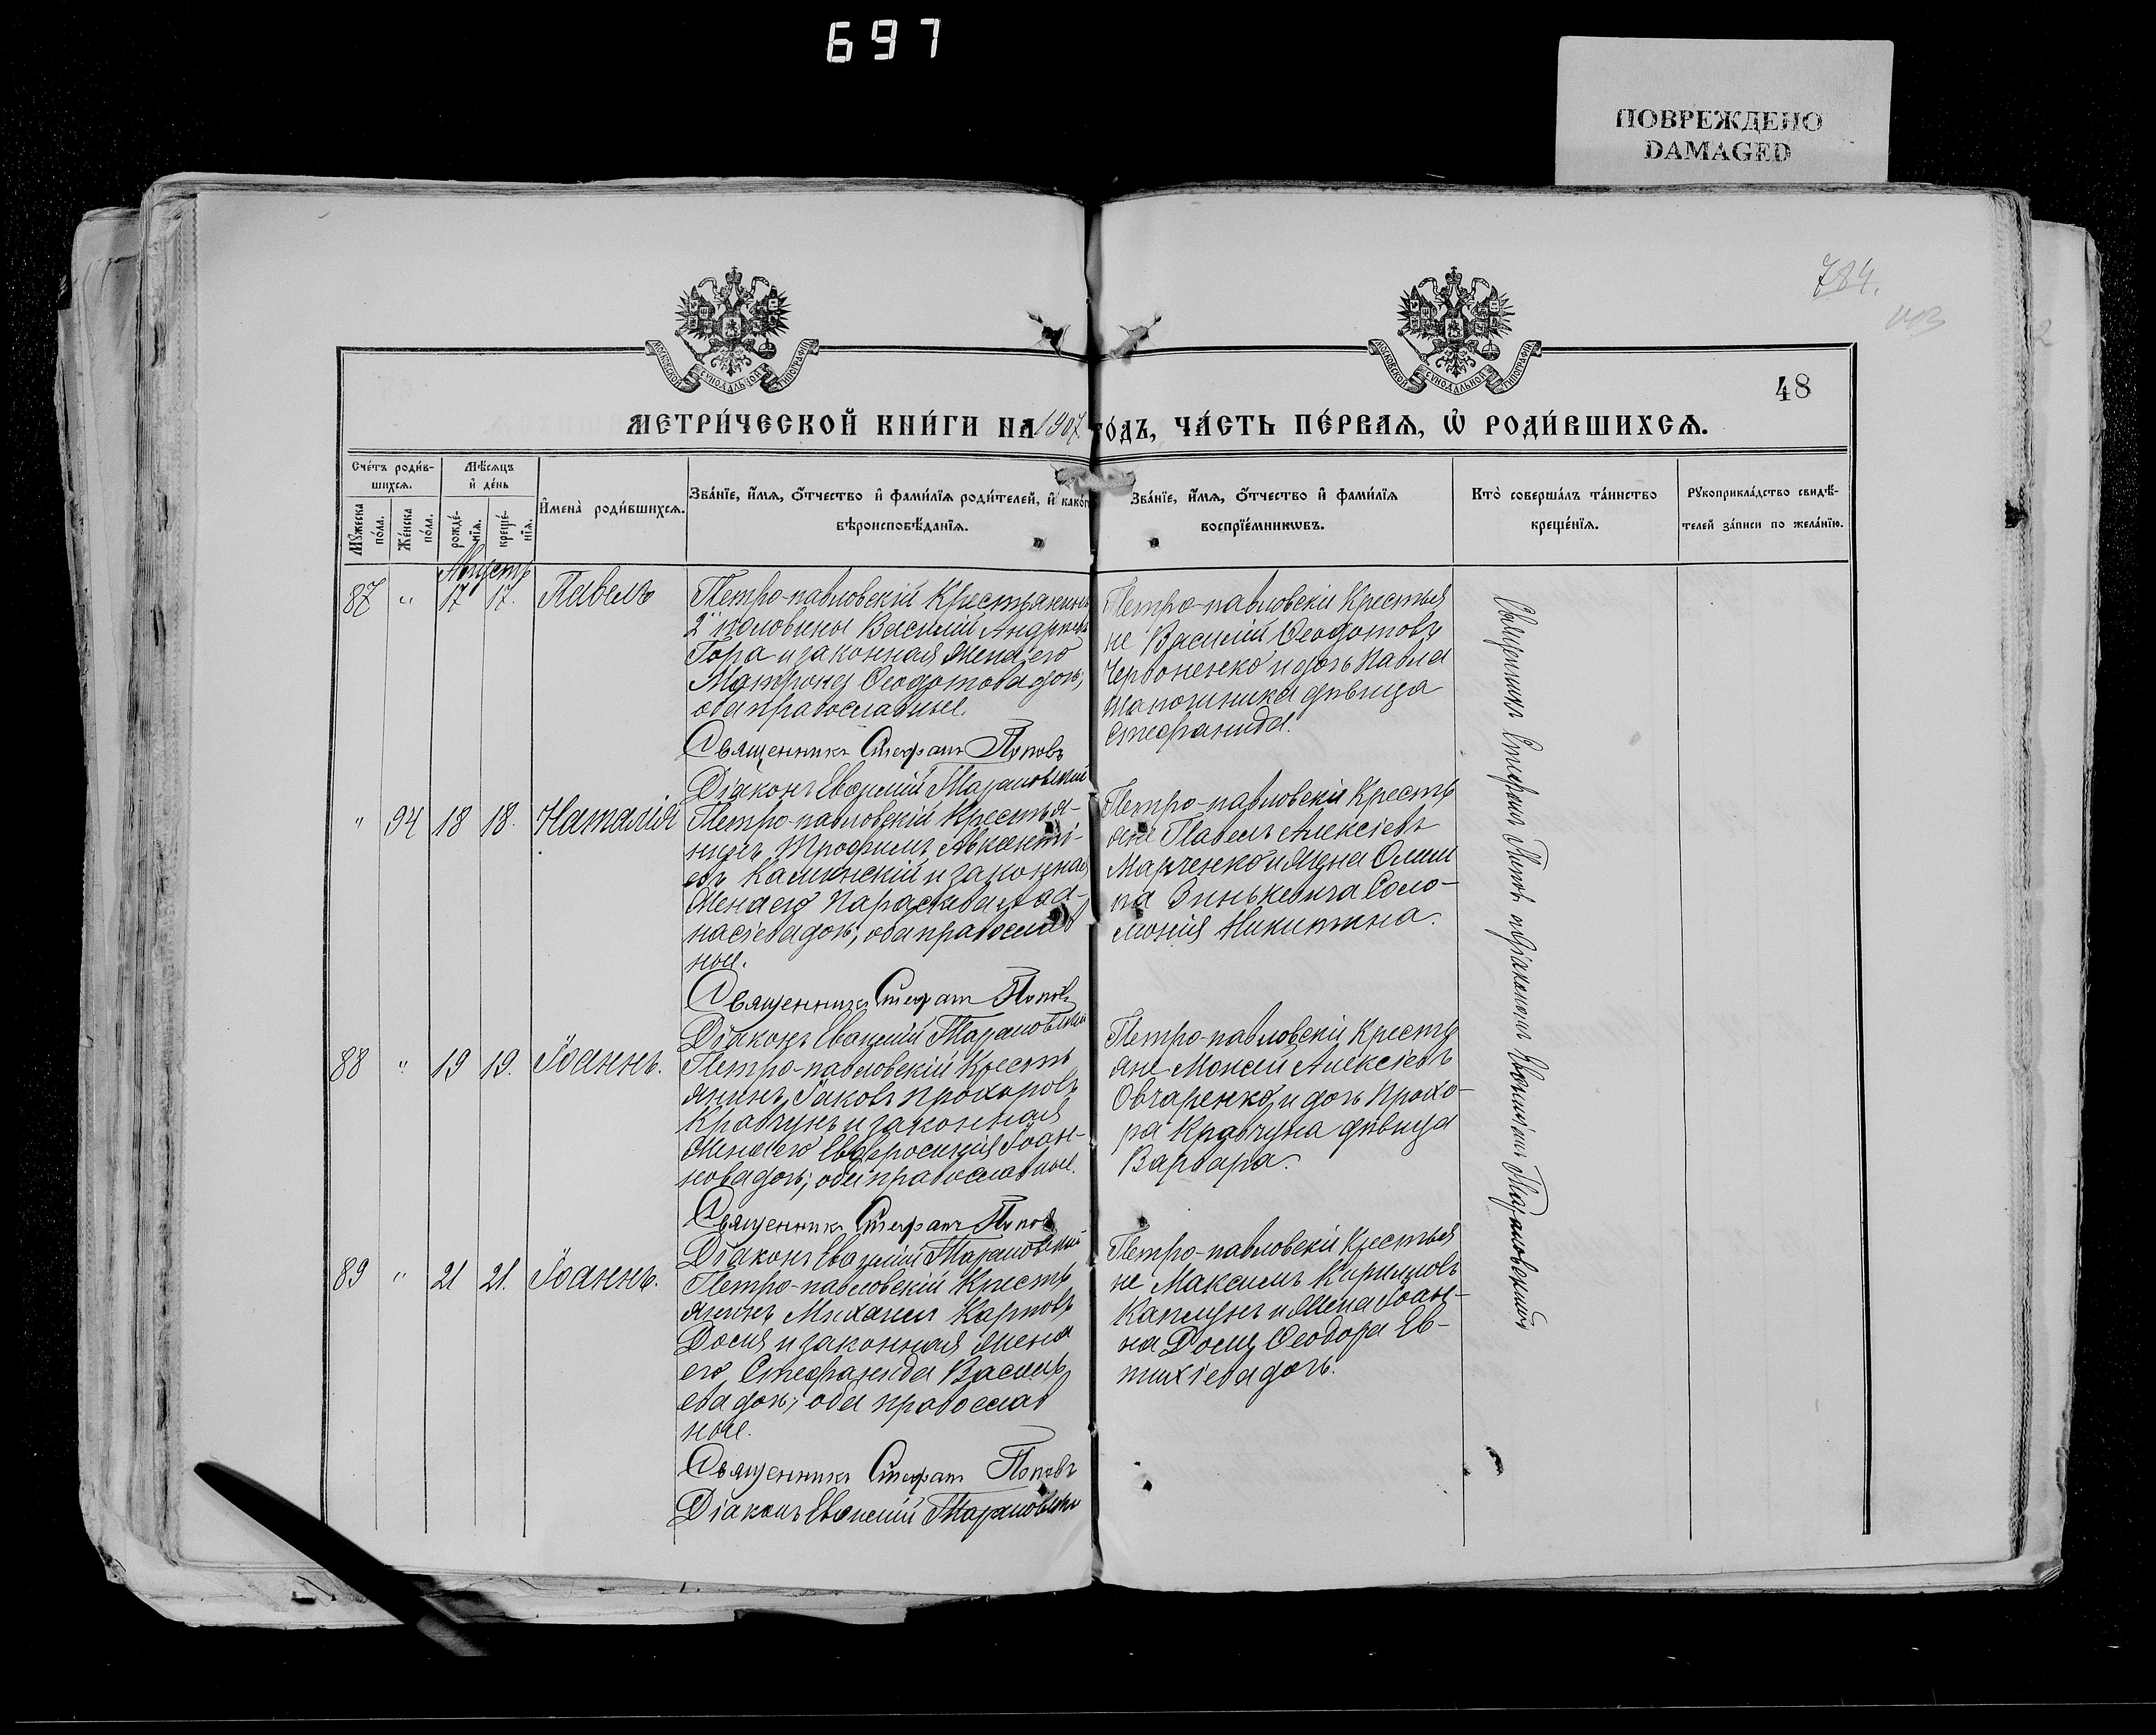 697
ПОВРЕЖДЕНО
DAMAGED
784.
МОСКОВСКОЙ СУНОДАЛЬНОЙ ТИПОГРАФІИ
МОСКОВСКОЙ СУНОДАЛЬНОЙ ТИПОГРАФІИ
48
МЕТРИ́ЧЕСКОЙ КНИ́ГИ НА 1907 ГО́ДЪ, ЧА́СТЬ ПЕ́РВАѦ, Ѡ҆ РОДИ́ВШИХСѦ.
Сче́тъ роди́в-
шихсѧ.
Мꙋ́жеска
по́ла.
Же́нска
по́ла.
Мѣ́сѧцъ
и҆ де́нь
рожде́-
нїѧ.
креще́-
нїѧ.
И҆мена̀ роди́вшихсѧ.
Зва́нїе, и҆́мѧ, ѻ҆́тчество и҆ фами́лїѧ роди́телей, и҆ како́гѡ
вѣроисповѣ́данїѧ.
Зва́нїе, и҆́мѧ, ѻ҆́тчество и҆ фами́лїѧ
воспрїе́мникѡвъ.
Кто̀ соверша́лъ та́инство
креще́нїѧ.
Рꙋкоприкла́дство свидѣ́-
телей за́писи по жела́нїю.
Августъ
87 " 17 17. Павелъ
Петро-павловскій Крестьянинъ
2й половины Василій Андреевъ
Гора и законная жена его
Матрона Ѳеодотова дочь;
оба православные.
Священникъ Стефанъ Поповъ
Діаконъ Евѳимій Тарановскій
Петро-павловскіе Крестья
не Василій Ѳеодотовъ
Червоненко и дочь Павла
Шапошника дѣвица
Стефанида.
" 94 18 18. Наталія
Петро-павловскій Крестья-
нинъ Трофимъ Авксенті-
евъ Калинскій и законная
жена его Параскева
насіева дочь; оба православ
ные.
Священникъ Стефанъ Поповъ
Діаконъ Евѳимій Тарановскій
Петро-павловскіе Кресть
яне Павелъ Алексіевъ
Марченко и жена Филип
па Зинькевича Соло-
монія Никитина.
88 " 19 19. Іоаннъ.
Петро-павловскій Кресть
янинъ Іаковъ Прохоровъ
Кравчунъ и законная
жена его Евфросинія Іоан-
нова дочь; оба православные.
Священникъ Стефанъ Поповъ
Діаконъ Евѳимій Тарановскій
Петро-павловскіе Кресть
яне Моисей Алексіевъ
Овчаренко и дочь Прохо-
ра Кравчуна дѣвица
Варвара.
89 " 21 21. Іоаннъ.
Петро-павловскій Кресть
янинъ Михаилъ Карповъ
Доля и законная жена
его Стефанида Василь
ева дочь; оба православ
ные.
Священникъ Стефанъ Поповъ
Діаконъ Евѳимій Тарановскій
Петро-павловскіе Крестья
не Максимъ Кирилловъ
Каплунъ и жена Іоан-
на Доли Ѳеодора Ев-
тихіева дочь.
Священникъ Стефанъ Поповъ съ діакономъ Евѳиміемъ Тарановскимъ